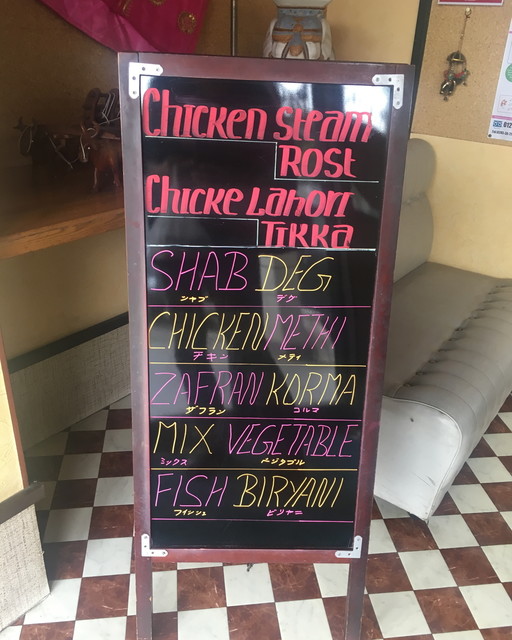 Chicken Steam
Rost
Chicke Lahori
Tikka
SHAB DEG
シャブ デグ
CHICKEN METHI
チキン メティ
ZAFRAN KORMA
ザフラン コルマ
MIX VEGETABLE
ミックス ベジタブル
FISH BIRYANI
フィッシュ ビリヤニ